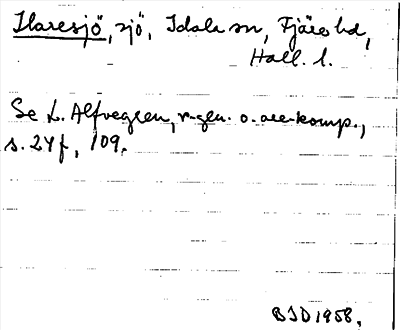 Ilaresjö, sjö, Idala sn, Fjäre hd,
Hall. l.
Se L. Alfvegren, r-gen. o. are-komp.,
s. 24 f, 109.
BJD 1958.